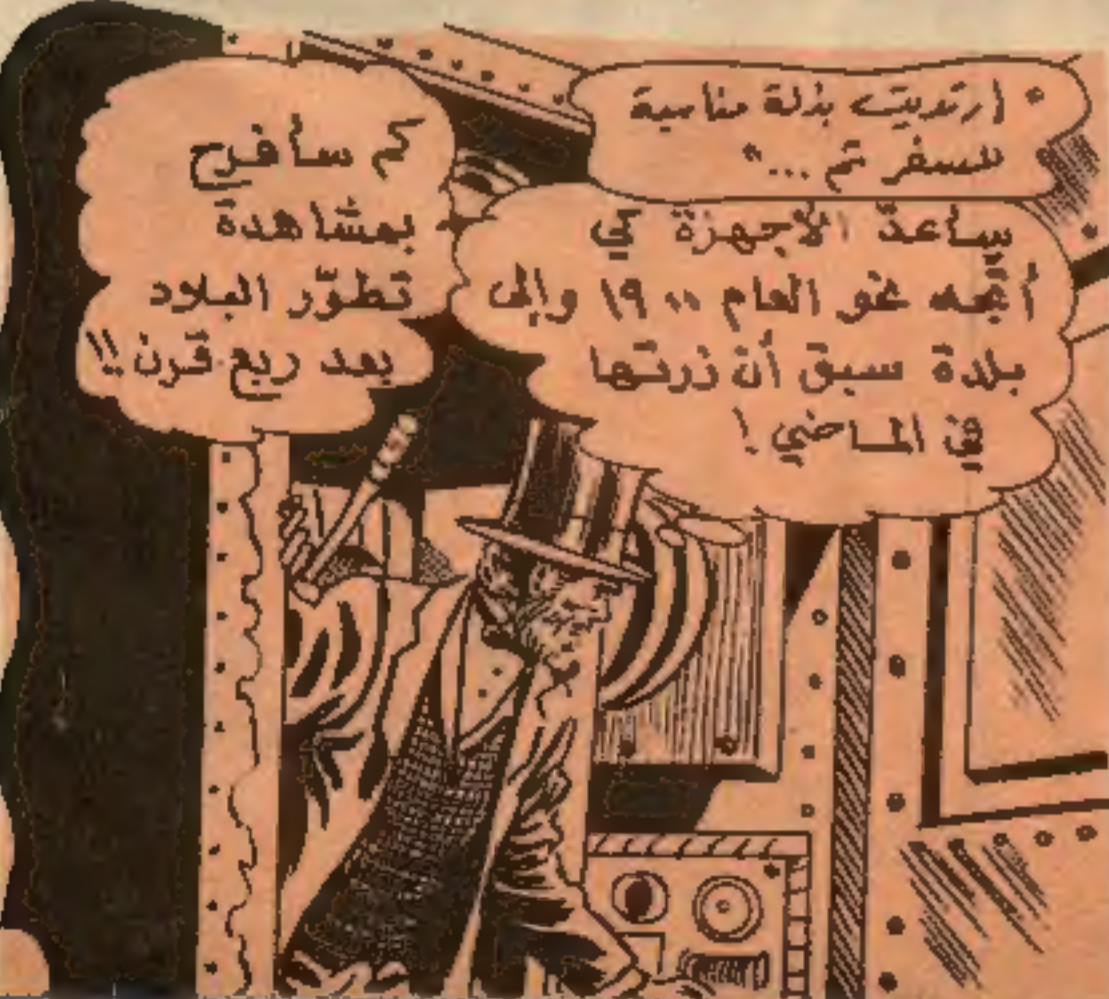 ارتديت بذلة مناسبة
للسفر ثم ...
سأعدّ الأجهزة كي
أتجه نحو العام ١٩٠٠ وإلى
بلدة سبق أن زرتها
في الماضي !
كم سأفرح
بمشاهدة
تطوّر البلاد
بعد ربع قرن !!